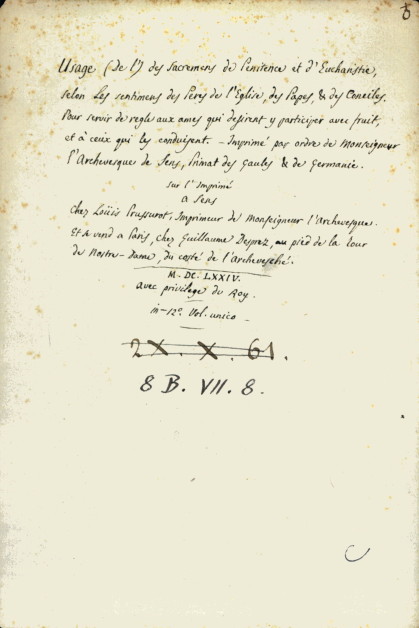 8
Usage (De l') des Sacremens de Penitence et d'Eucharistie,
selon Les sentimens des Peres de l'Eglise, des Papes, & des Conciles.
Pour servir de regle aux ames qui desirent y participer avec fruit,
et à ceux qui les conduisent. - Imprimé par ordre de Monseigneur
l'Archevesque de Sens, Primat des Gaules & de Germanie.
Sur l'Imprimé
a Sens
Chez Loüis Prussurot, Imprimeur de Monseigneur l'Archevesque.
Et se vend a Paris, chez Guillaume Desprez, au pied de la Tour
de Nostre-Dame, du costé de l'Archevesché.
M-DC-LXXIV.
avec privilege du Roy.
in-12º. Vol. unico
2X. X. 61.
8 B. VII. 8.